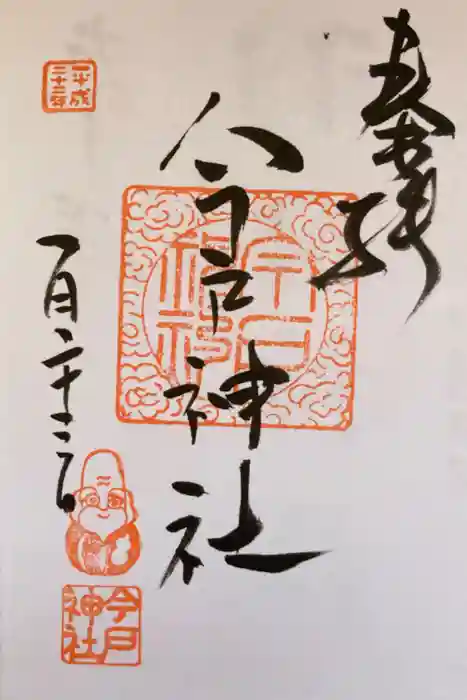 奉拝
今戸神社
今戸神社
平成二十三年
一月二十三日
今戸神社